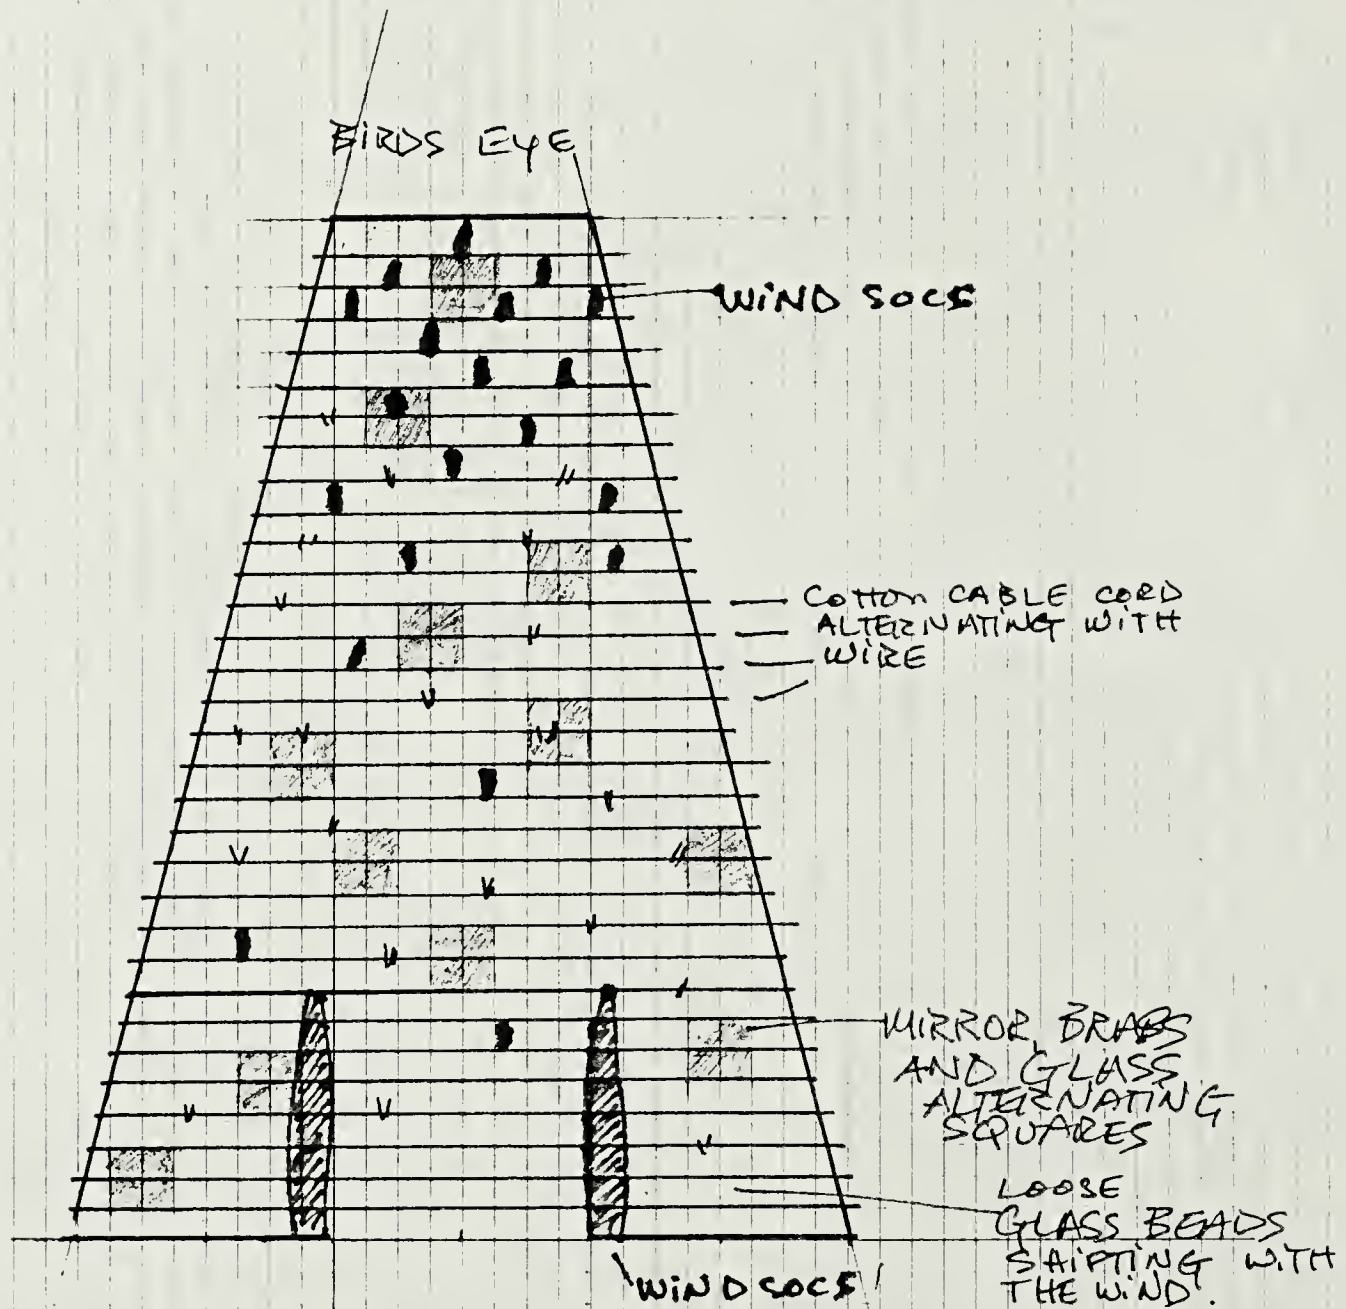 BIRDS EYE
WIND SOCS
COTTON CABLE CORD
ALTERNATING WITH
WIRE
MIRROR, BRASS
AND GLASS
ALTERNATING
SQUARES
LOOSE
GLASS BEADS
SHIFTING WITH
THE WIND.
WIND SOCS